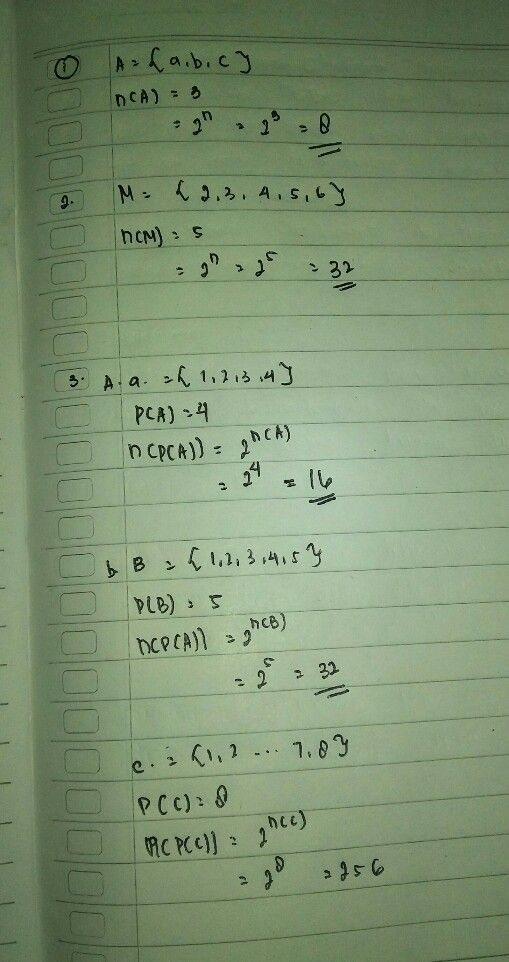 ① A = {a, b, c}
n(A) = 3
= 2ⁿ = 2³ = 8
2. M = {2, 3, 4, 5, 6}
n(M) = 5
= 2ⁿ = 2⁵ = 32
3. A. a. = {1, 2, 3, 4}
P(A) = 4
n(P(A)) = 2ⁿ⁽ᴬ⁾
= 2⁴ = 16
b B = {1, 2, 3, 4, 5}
P(B) = 5
n(P(A)) = 2ⁿ⁽ᴮ⁾
= 2⁵ = 32
c. = {1, 2 ... 7, 8}
P(C) = 8
n(P(C)) = 2^n(C)
= 2⁸ = 256